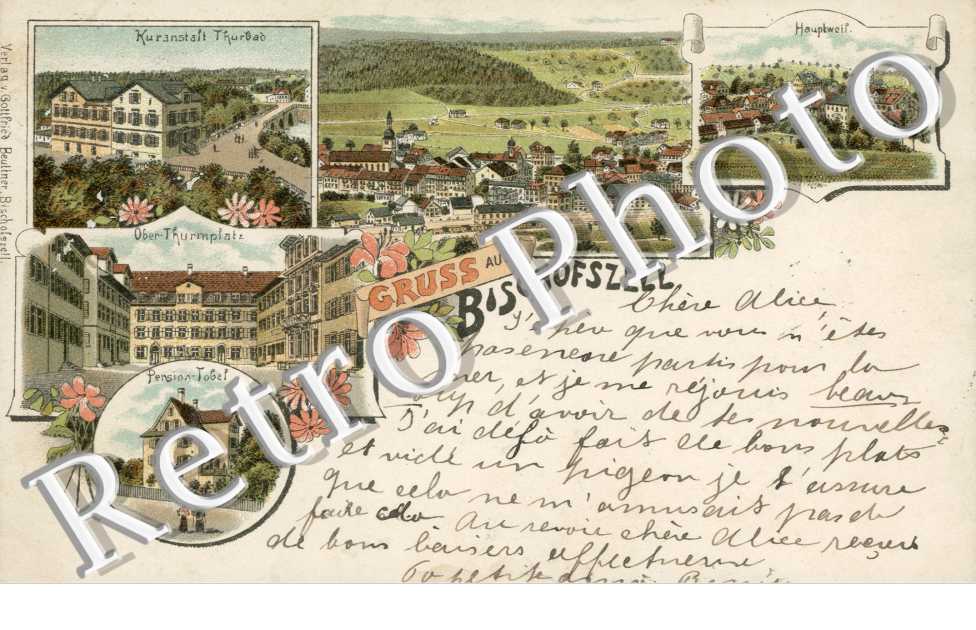 Kuranstalt Thurbad
Hauptweil.
Verlag v. Gottfried Beutner, Bischofszell
Ober-Thurmplatz
GRUSS AU
BISCHOFSZELL
Pension-Tobel
Retro Photo
Chère Alice
que vous n'êtes
pas encore partis pour la
mer, et je me réjouis beauc
oup d'avoir de tes nouvelles
J'ai déjà fait de bons plats
et vidé un pigeon je t'assure
que cela ne m'amusait pas de
faire cela Au revoir chère Alice reçois
de bons baisers